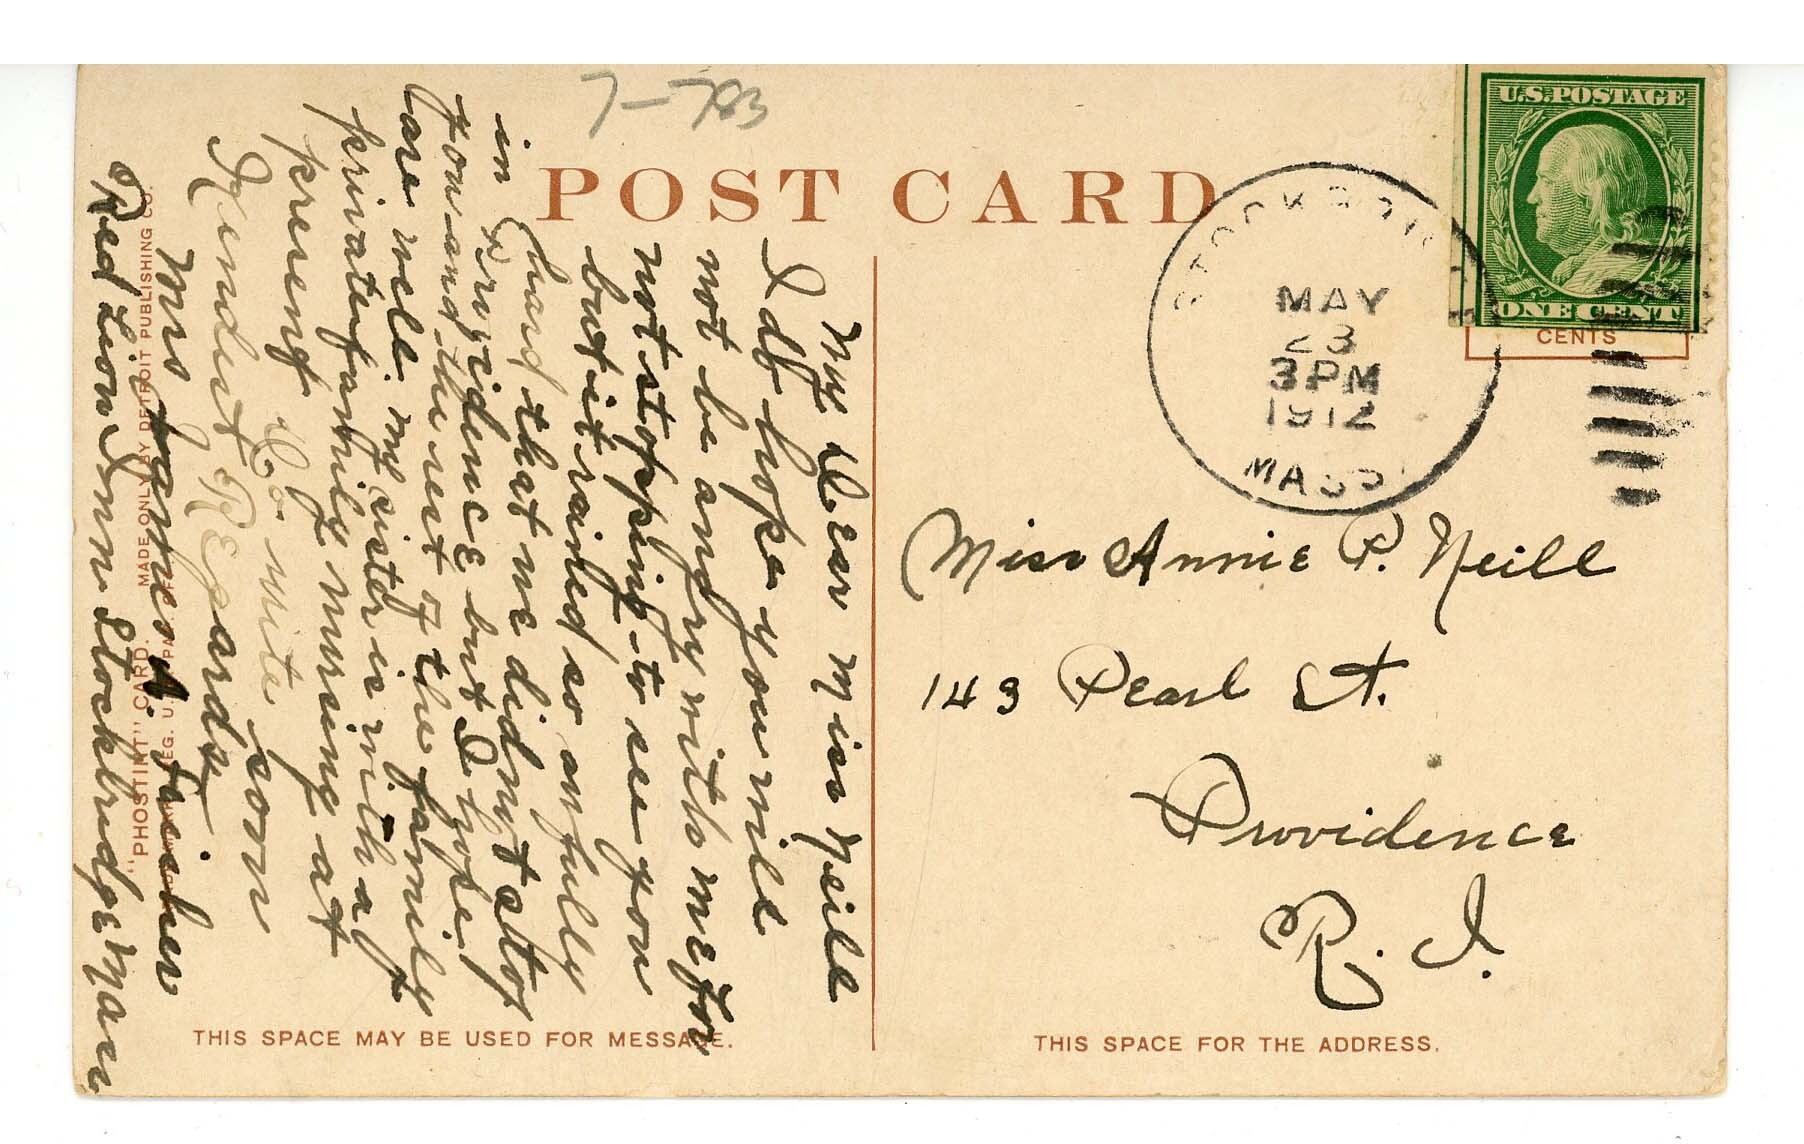 7-783
POST CARD
U.S. POSTAGE
ONE CENT
CENTS
STOCKBRIDGE
MAY
23
3 PM
1912
MASS
My Dear Miss Neill
I do hope you will
not be angry with me for
not stopping to see you
but it rained so awfully
hard that we did not stop
in Providence but I hope
you and the rest of the family
are well. my sister is with a
private family nursing at
present Do write soon
Kindest REgards.
Mrs James A.
Red Lion Inn Stockbridge Mass
Miss Annie P. Neill
143 Pearl St.
Providence
R. I.
"PHOSTINT" CARD.
MADE ONLY BY DETROIT PUBLISHING CO.
THIS SPACE MAY BE USED FOR MESSAGE.
THIS SPACE FOR THE ADDRESS.